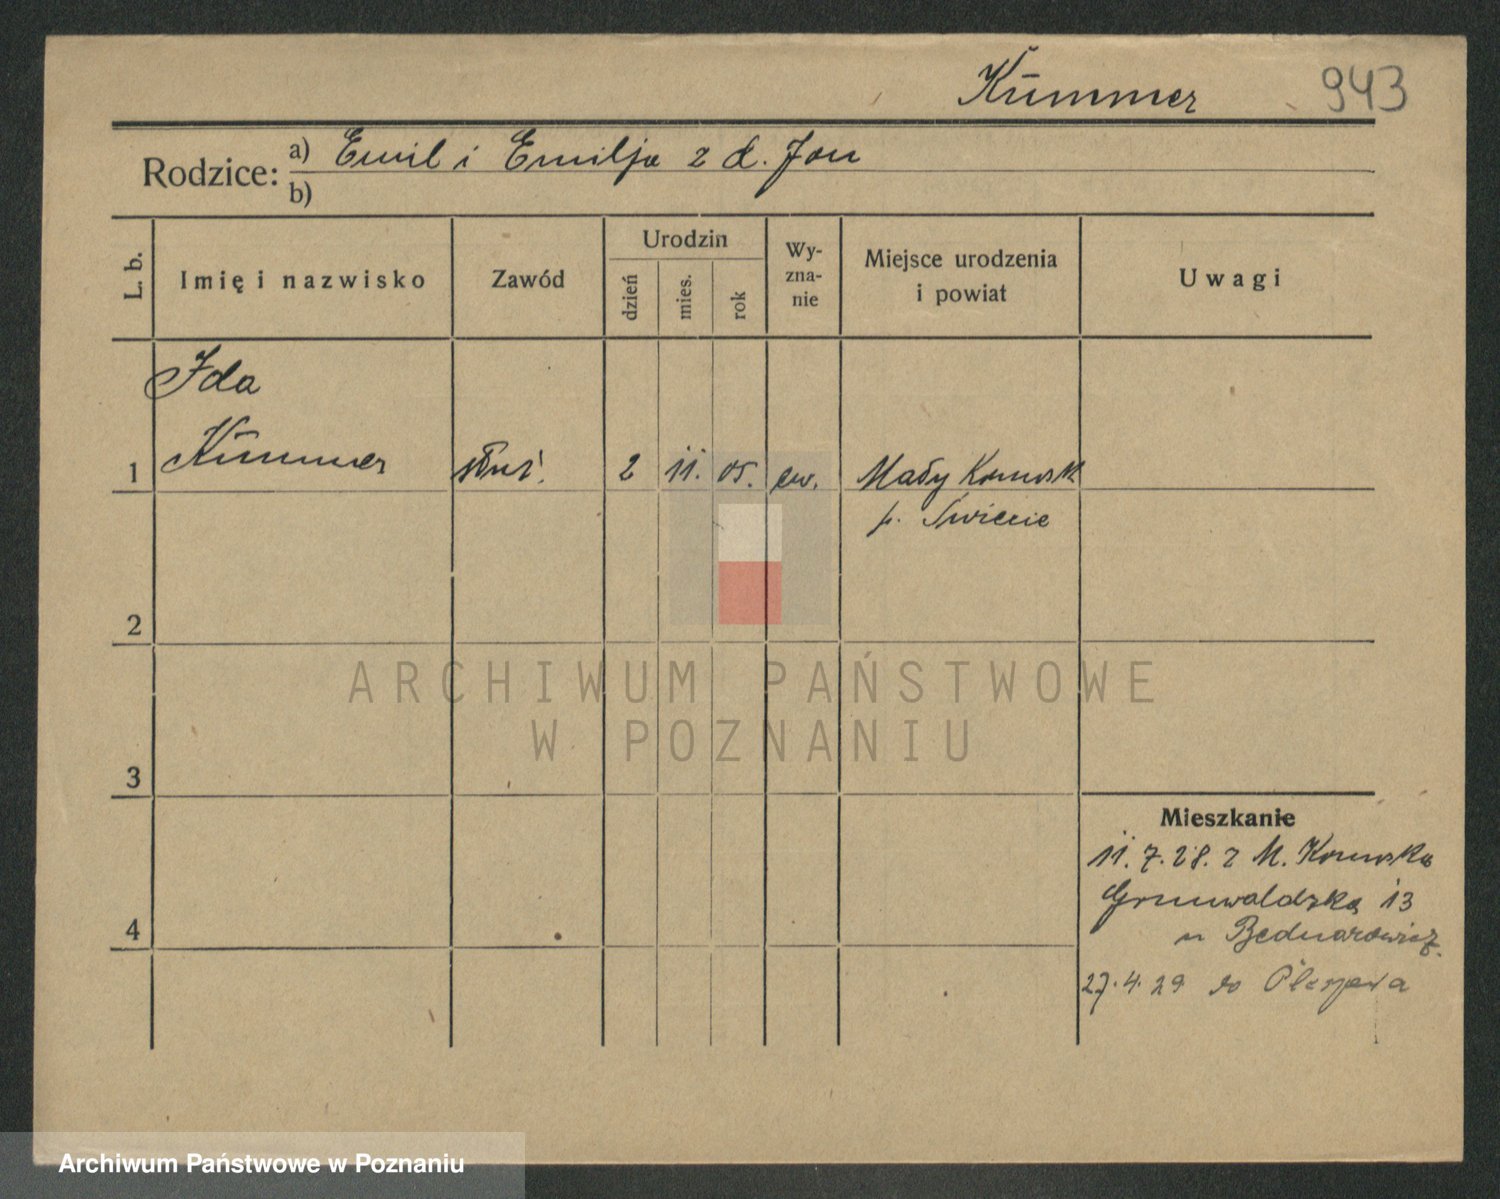 Kümmer 943
Rodzice: a) Emil i Emilja z d. Jon
b)
L. b.
Imię i nazwisko
Zawód
Urodzin
dzień
mies.
rok
Wy-
zna-
nie
Miejsce urodzenia
i powiat
Uwagi
Ida
1 Kümmer służ. 2 11. 05. ew. Mały Komorsk
p. Świecie
2
ARCHIWUM PAŃSTWOWE
W POZNANIU
3
Mieszkanie
11.7.28. z M. Komorska
Grunwaldzka 13
u Bednarowicz.
4
27.4.29 do Pleszewa
Archiwum Państwowe w Poznaniu